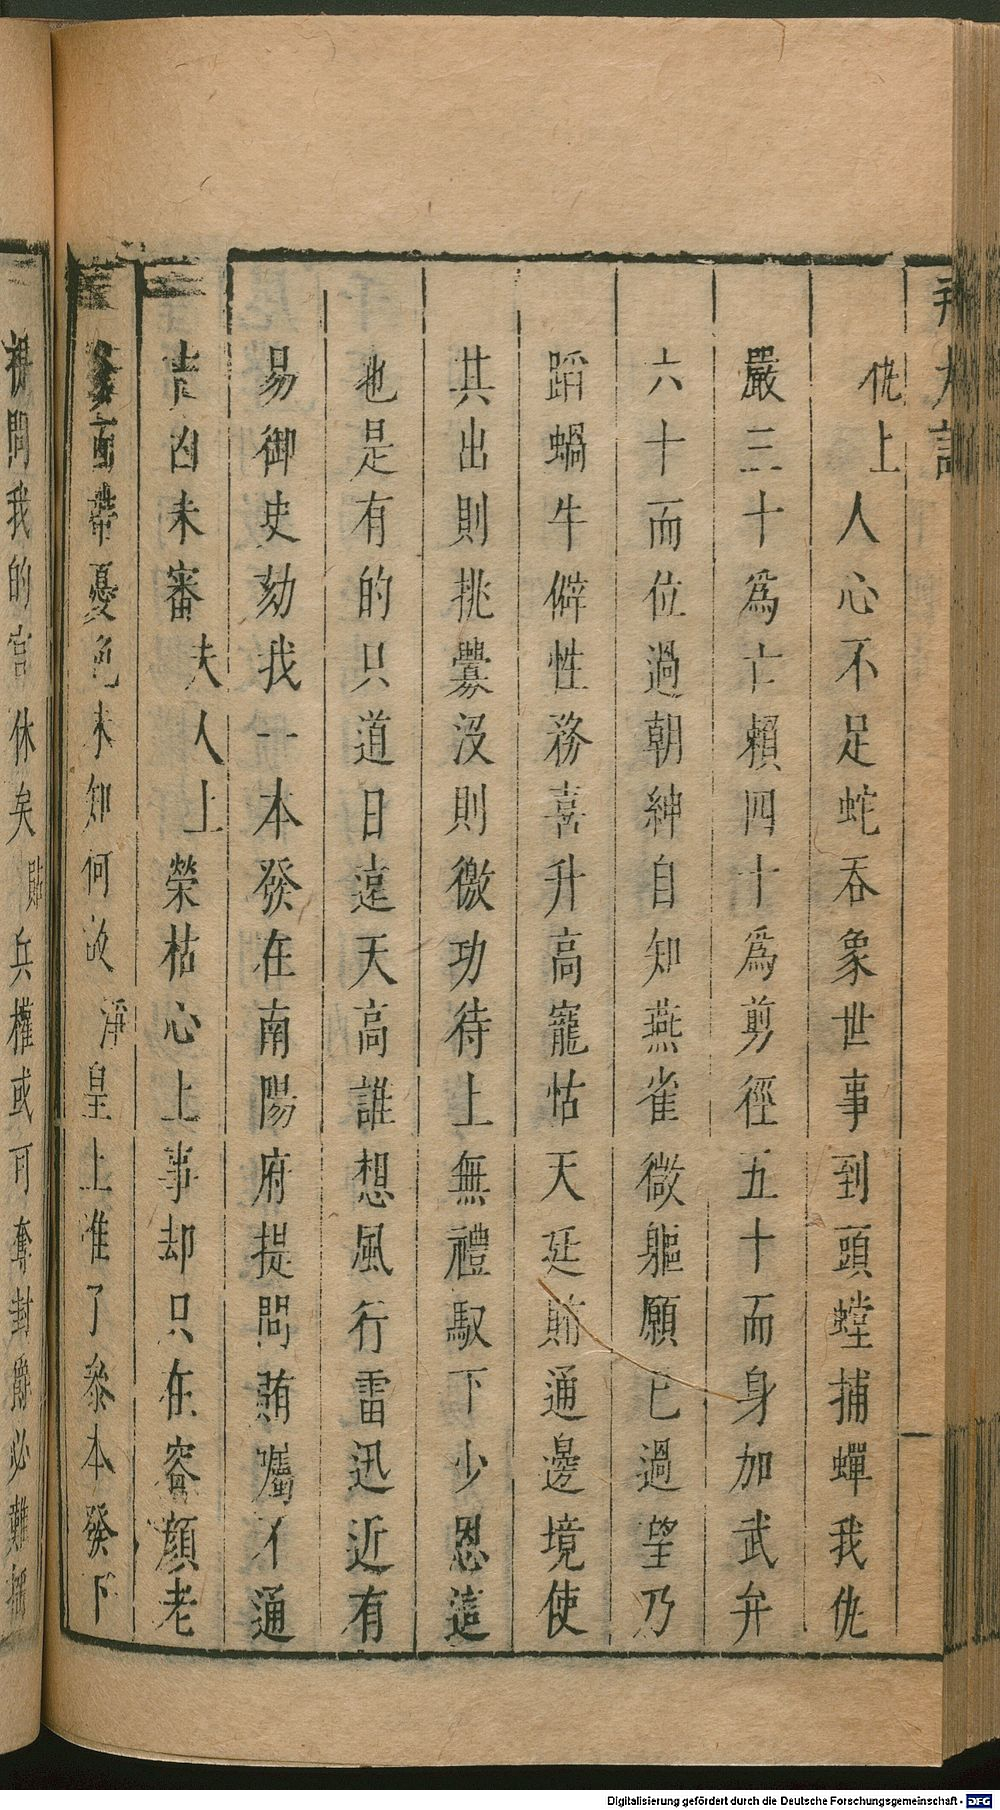 仇上人心不足蛇吞象世事到頭螳捕蟬我仇
嚴三十爲亡賴四十爲剪徑五十而身加武弁
六十而位過朝紳自知燕雀微軀願已過望乃
蹈蝸牛僻性務喜升高寵怙天延賄通邊境使
其出則挑釁沒則徼功待上無禮馭下少恩這
也是有的只道日遠天高誰想風行雷迅近有
易御史劾我一本發在南陽府提問賄囑不通
吉凶未審夫人上榮枯心上事却只在容顔老
爹面帶憂色未知何故淨皇上准了叅本發下
問我的官休矣貼兵權或可奪封爵必難
Digitalisierung gefördert durch die Deutsche Forschungsgemeinschaft - DFG